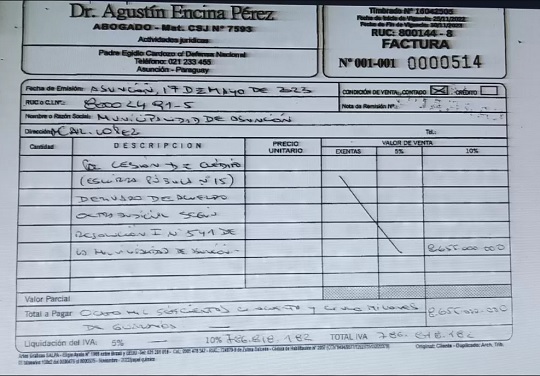 Dr. Agustín Encina Pérez
ABOGADO - Mat. CSJ N° 7593
Actividades jurídicas
Padre Egidio Cardozo c/ Defensa Nacional
Teléfono: 021 233 455
Asunción - Paraguay
Timbrado N° 16042505
RUC: 800144 - 8
FACTURA
N° 001-001 0000514
Fecha de Emisión: ASUNCION, 17 DE MAYO DE 2023
CONDICIÓN DE VENTA: CONTADO X CRÉDITO
RUC o C.I.N°.:
Nota de Remisión N°:
Nombre o Razón Social: MUNICIPALIDAD DE ASUNCIÓN
Dirección: LOPEZ Tel.:
Cantidad DESCRIPCION PRECIO UNITARIO VALOR DE VENTA
EXENTAS 5% 10%
CESION DE CREDITO
N° 15)
DE ACUERDO
SEGÚN
RESOLUCION N° 541 DE
LA MUNICIPALIDAD DE ASUNCIÓN 8655.000.000
Valor Parcial
Total a Pagar OCHO MIL SEISCIENTOS CINCUENTA Y CINCO MILLONES 8655.000.000
DE GUARANIES
Liquidación del IVA: 5% 10% 786.818.182 TOTAL IVA 786.818.182
Original: Cliente - Duplicado: Arch. Trib.